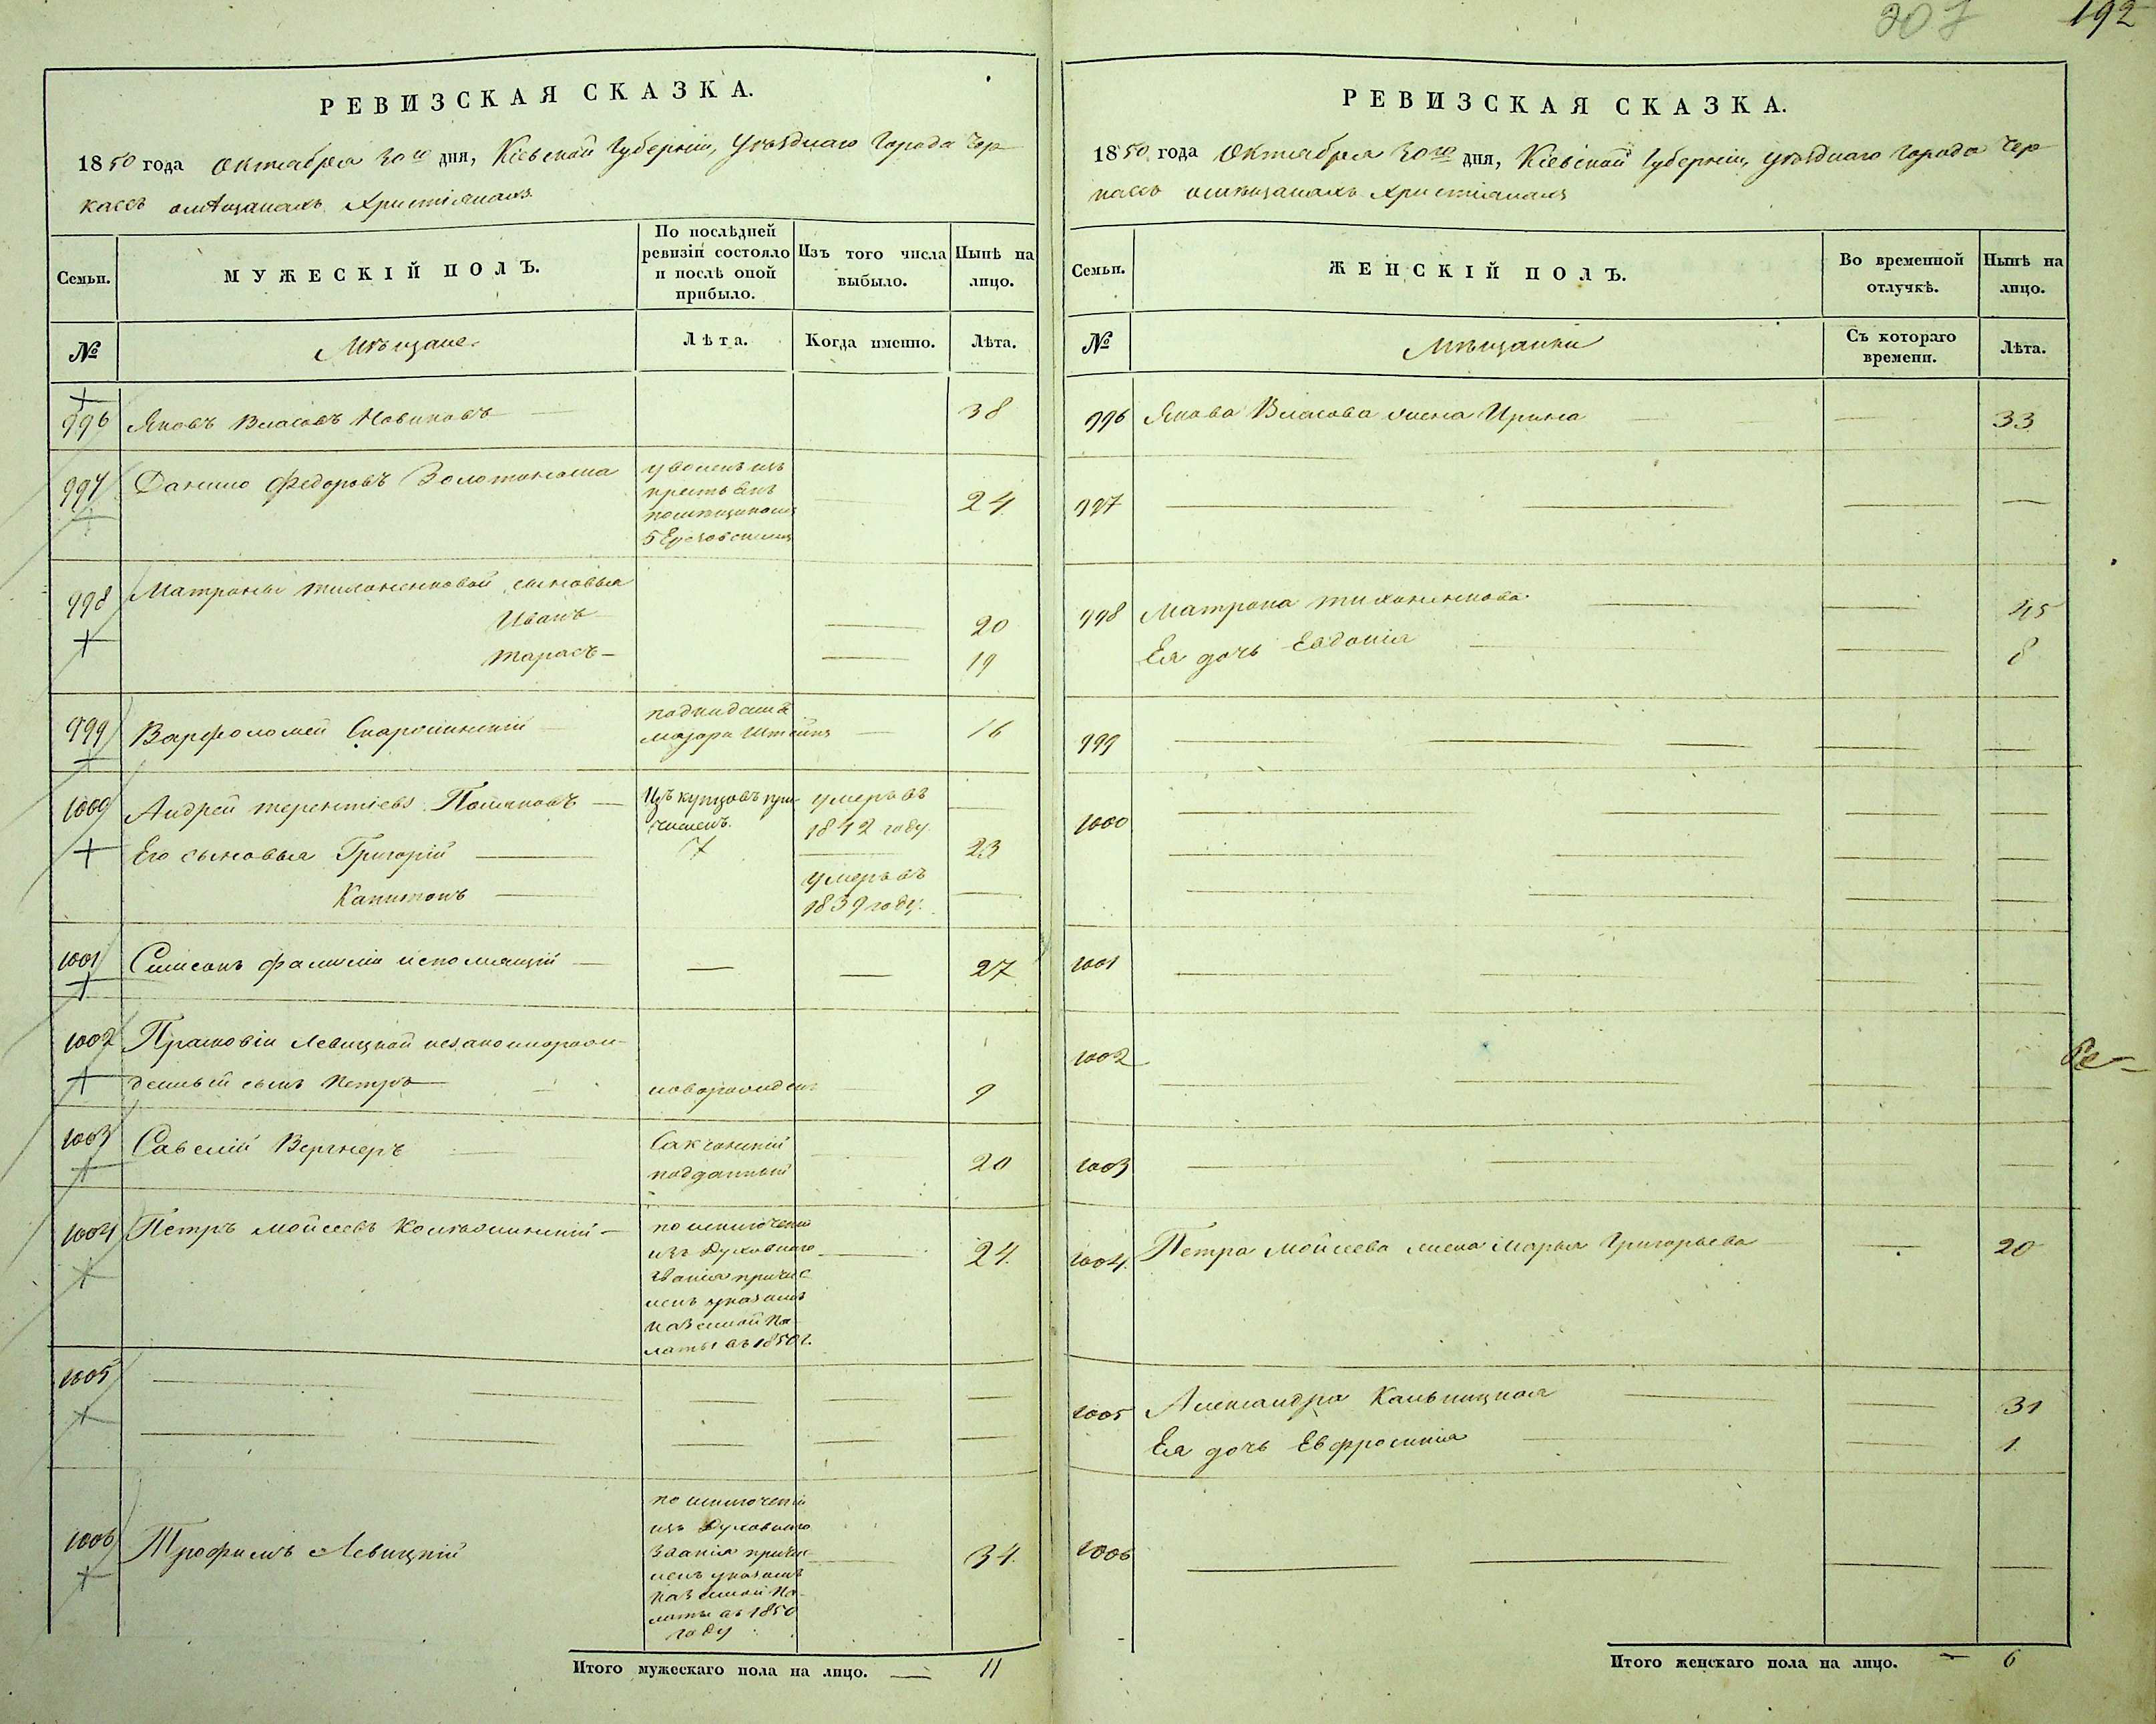 207 192
РЕВИЗСКАЯ СКАЗКА.
1850 года Октября 30го дня, Кіевской Губерніи, Уѣзднаго Города Чер
касъ омѣщанахъ Христіянахъ
Семьи.
МУЖЕСКІЙ ПОЛЪ.
По послѣдней
ревизіи состояло
и послѣ оной
прибыло.
Изъ того числа
выбыло.
Нынѣ на
лицо.
№
Мѣщане
Лѣта.
Когда именно.
Лѣта.
996 Яковъ Власовъ Новиковъ 38
997 Данило Федоровъ уволенъ изъ
крестьянъ
24
998 Матроны Тихоненковой сыновья
Иванъ 20
Тарасъ 19
999 Варфоломей подкидышъ
маіора 16
1000 Андрей Терентіевъ Поляковъ Изъ купцовъ при-
численъ. умеръ въ
1842 году.
Его сыновья Григорій 7 23
Капитонъ умеръ въ
1839 году.
1001 Симеонъ фамиліи непомнящій 27
1002 Прасковіи Левицкой незаконнорож-
денный сынъ Петръ новорожденъ 9
1003 Савелій Вергнеръ Саксонскій
подданный 20
1004 Петръ Мойсеевъ по исключеніи
изъ Духовнаго
званія причис
ленъ указомъ
казенной Па-
латы въ 1850 г. 24
1005
1006 Трофимъ Левицкій по исключеніи
изъ Духовнаго
званія причис
ленъ указомъ
казенной Па-
латы въ 1850
году 34
Итого мужескаго пола на лицо. 11
РЕВИЗСКАЯ СКАЗКА.
1850 года Октября 30го дня, Кіевской Губерніи, уѣзднаго города Чер
касъ омѣщанахъ Христіанахъ
Семьи.
ЖЕНСКІЙ ПОЛЪ.
Во временной
отлучкѣ.
Нынѣ на
лицо.
№
Мѣщанки
Съ котораго
времени.
Лѣта.
996 Якова Власова жена Ирина 33
997
998 Матрона Тихоненкова 45
Ея дочь Евдокія 8
999
1000
1001
1002
1003
1004 Петра Мойсеева жена Марья Григорьева 20
1005 Александра 31
Ея дочь Евфросинія 1
1006
Итого женскаго пола на лицо. 6